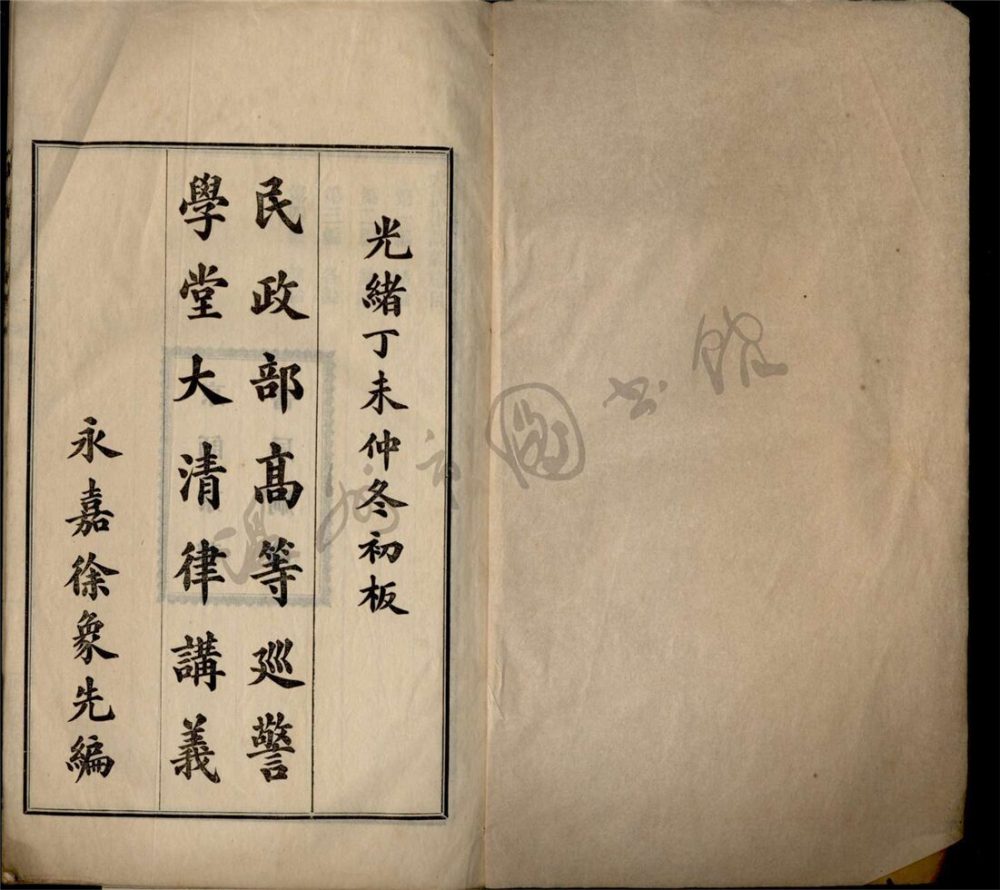 光緒丁未仲冬初板
民政部高等巡警
學堂大清律講義
永嘉徐象先編